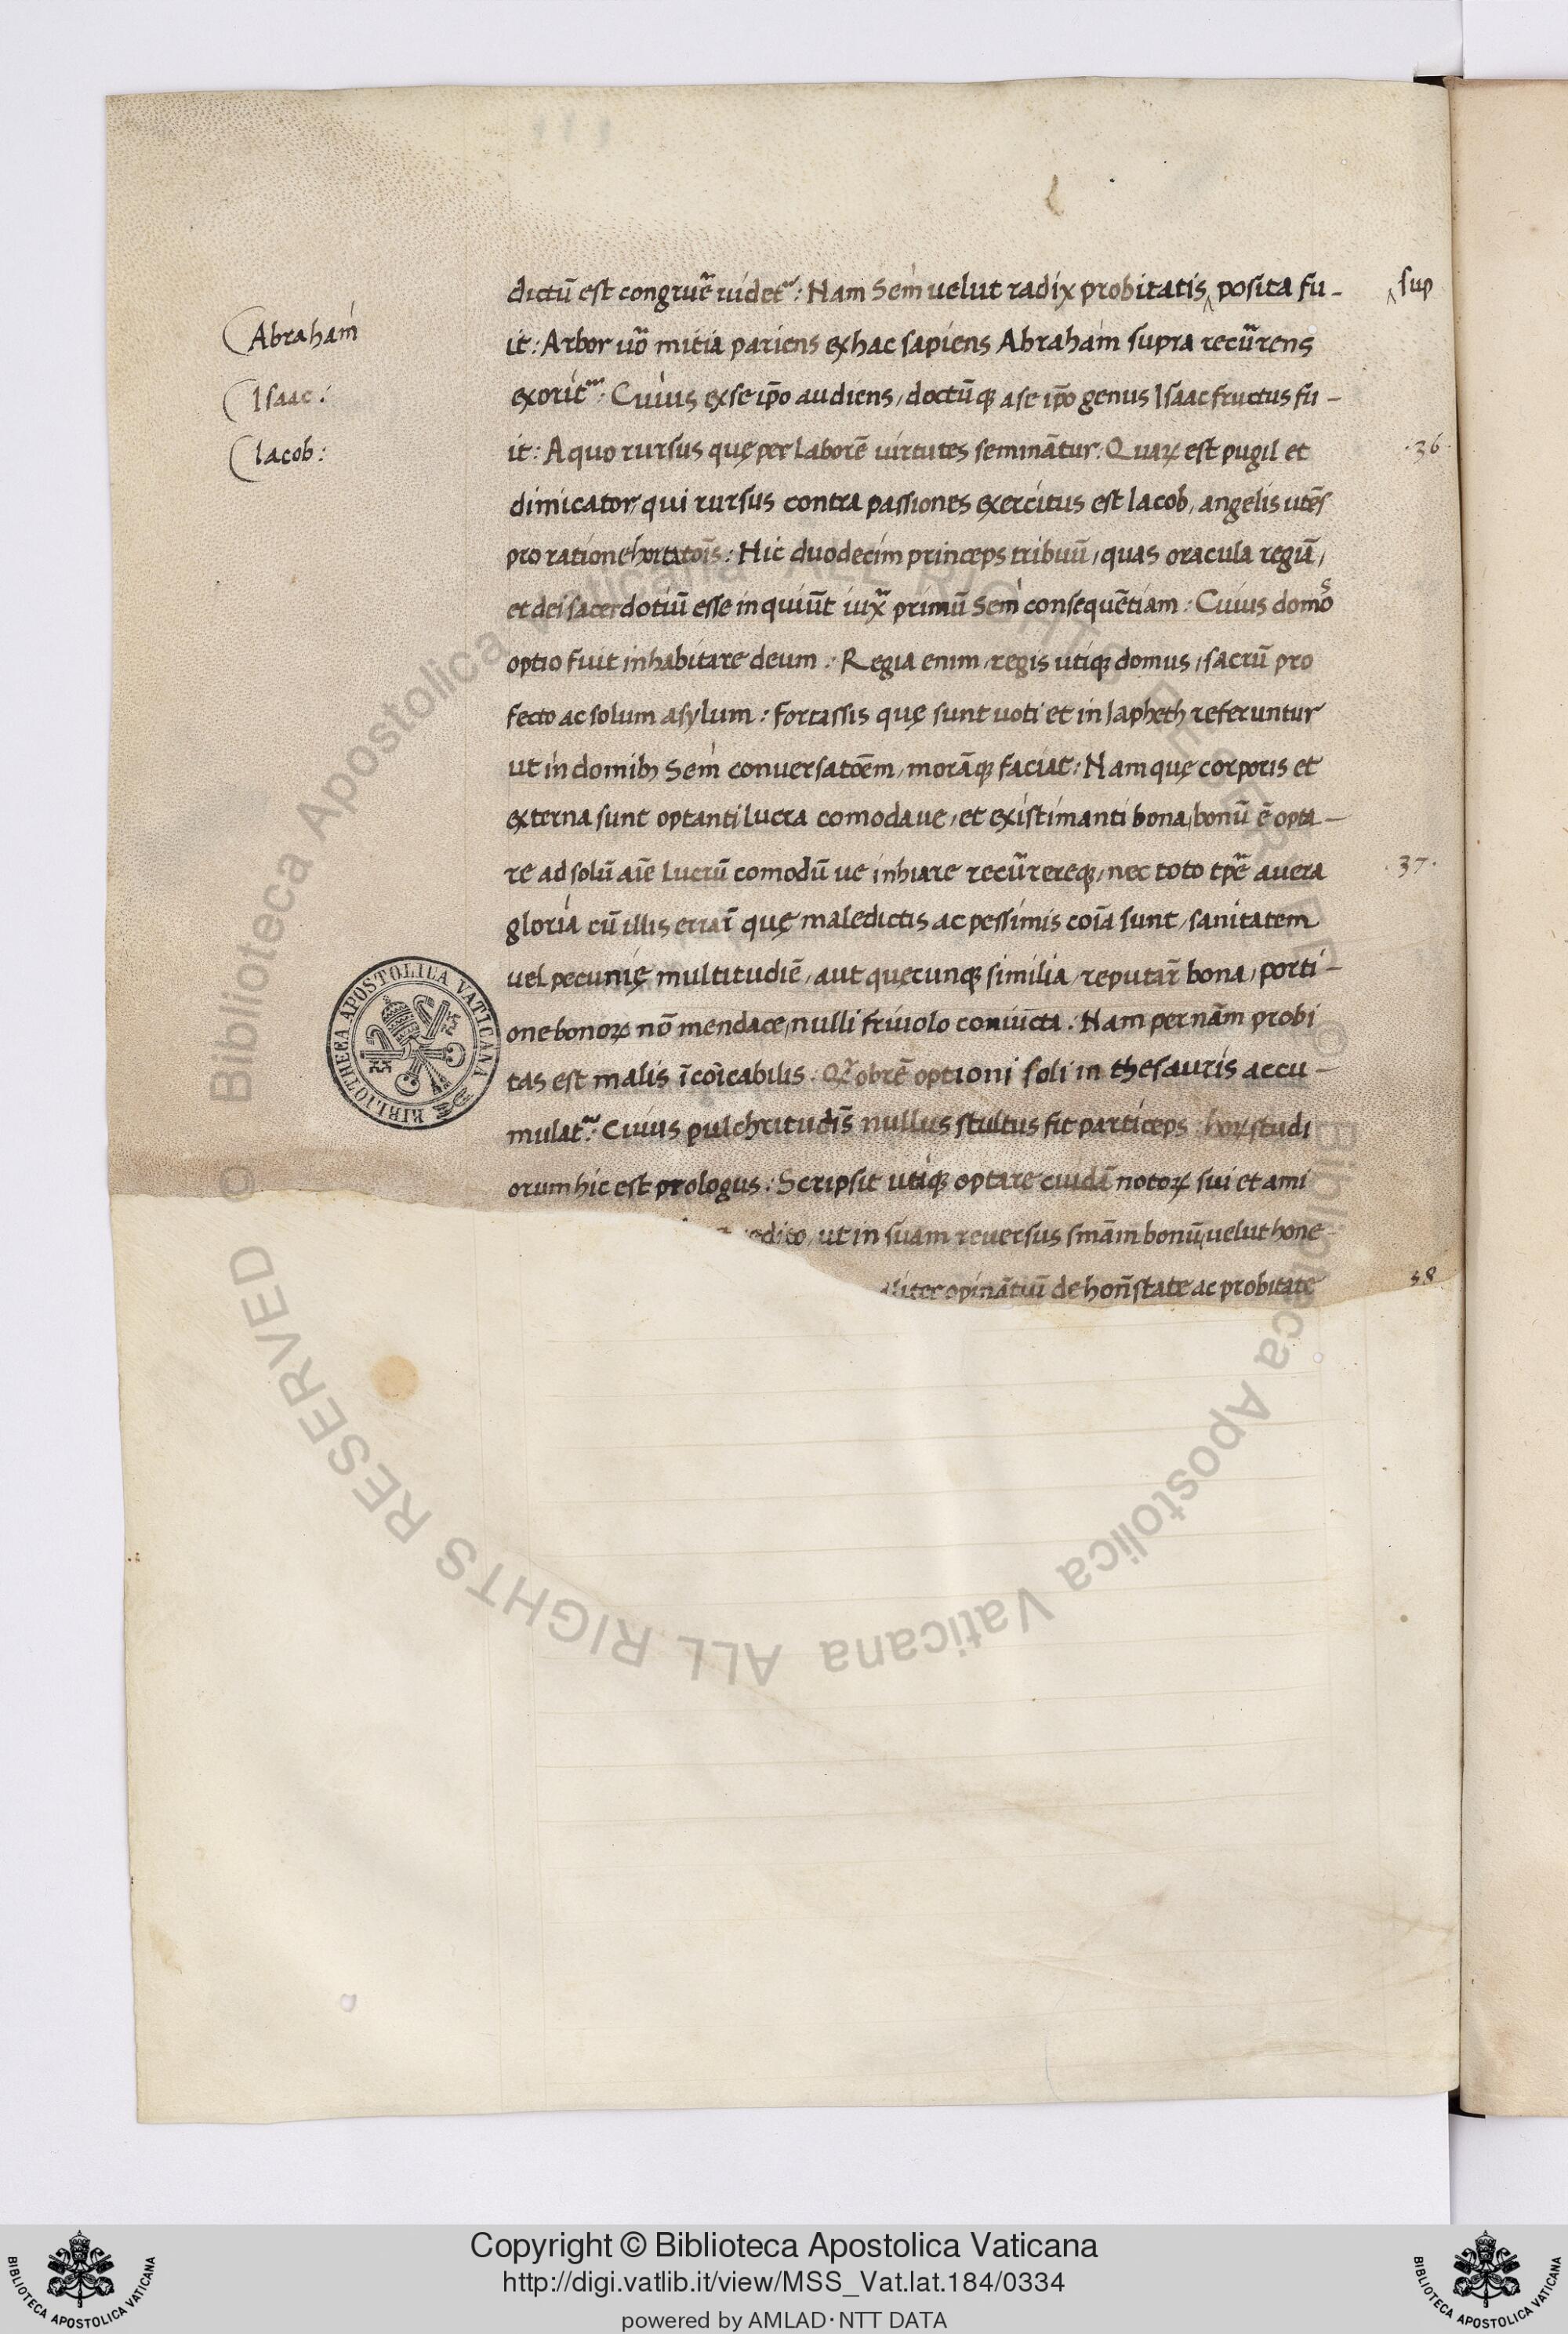 dictū est congruē uidet᷑: Nam Sem uelut radix probitatis ‸ posita fu-
‸ sup
Abraham
it: Arbor uō mitia pariens ex hac sapiens Abraham supra recūrens
Isaac:
exorit᷑: Cuius ex se ip̄o audiens, doctūq; a se ip̄o genus Isaac fructus fu-
Iacob:
it: A quo rursus quę per laborē uirtutes seminātur: Quaꝝ est pugil et
·36·
dimicator, qui rursus contra passiones exercitus est Iacob, angelis utēs
pro ratione hortatoīs: Hic duodecim princeps tribuū, quas oracula regiū,
et dei sacerdotiū esse inquiūt iux̄ primū Sem consequētiam: Cuius domoˢ
optio fuit inhabitare deum: Regia enim, regis utiq; domus, sacrū pro
fecto ac solum asylum: fortassis quę sunt uoti et in Iapheth referuntur
ut in domibꝫ Sem conuersatōem, morāq; faciat: Nam quę corporis et
externa sunt optanti lucra comodaue, et existimanti bona, bonū ē opta-
re ad solū aīe lucrū comodū ue inhiare recūrereq;, nec toto tp̄e a uera
·37·
gloria cū illis errar̄ quę maledictis ac pessimis coīa sunt, sanitatem
uel pecunię multitudiē, aut quęcunq; similia, reputar̄ bona, porti-
one bonoꝝ nō mendace, nulli friuolo coniūcta: Nam per nām probi
tas est malis īcoīcabilis: Q̄obrē optioni soli in thesauris accu-
mulat᷑: Cuius pulchritudīs nullus stultus fit particeps: hoꝝ studi
orum hic est prologus: Scripsit utiq; optare cuidā notoꝝ sui et ami
redito, ut in suam reuersus smām bonū, uelut hone
aliter opinātiū de hon̄state ac probitate
38
BIBLIOTHECA APOSTOLICA VATICANA
© Biblioteca Apostolica Vaticana ALL RIGHTS RESERVED
© Biblioteca Apostolica Vaticana ALL RIGHTS RESERVED
Copyright © Biblioteca Apostolica Vaticana
http://digi.vatlib.it/view/MSS_Vat.lat.184/0334
powered by AMLAD·NTT DATA
BIBLIOTECA APOSTOLICA VATICANA
BIBLIOTECA APOSTOLICA VATICANA